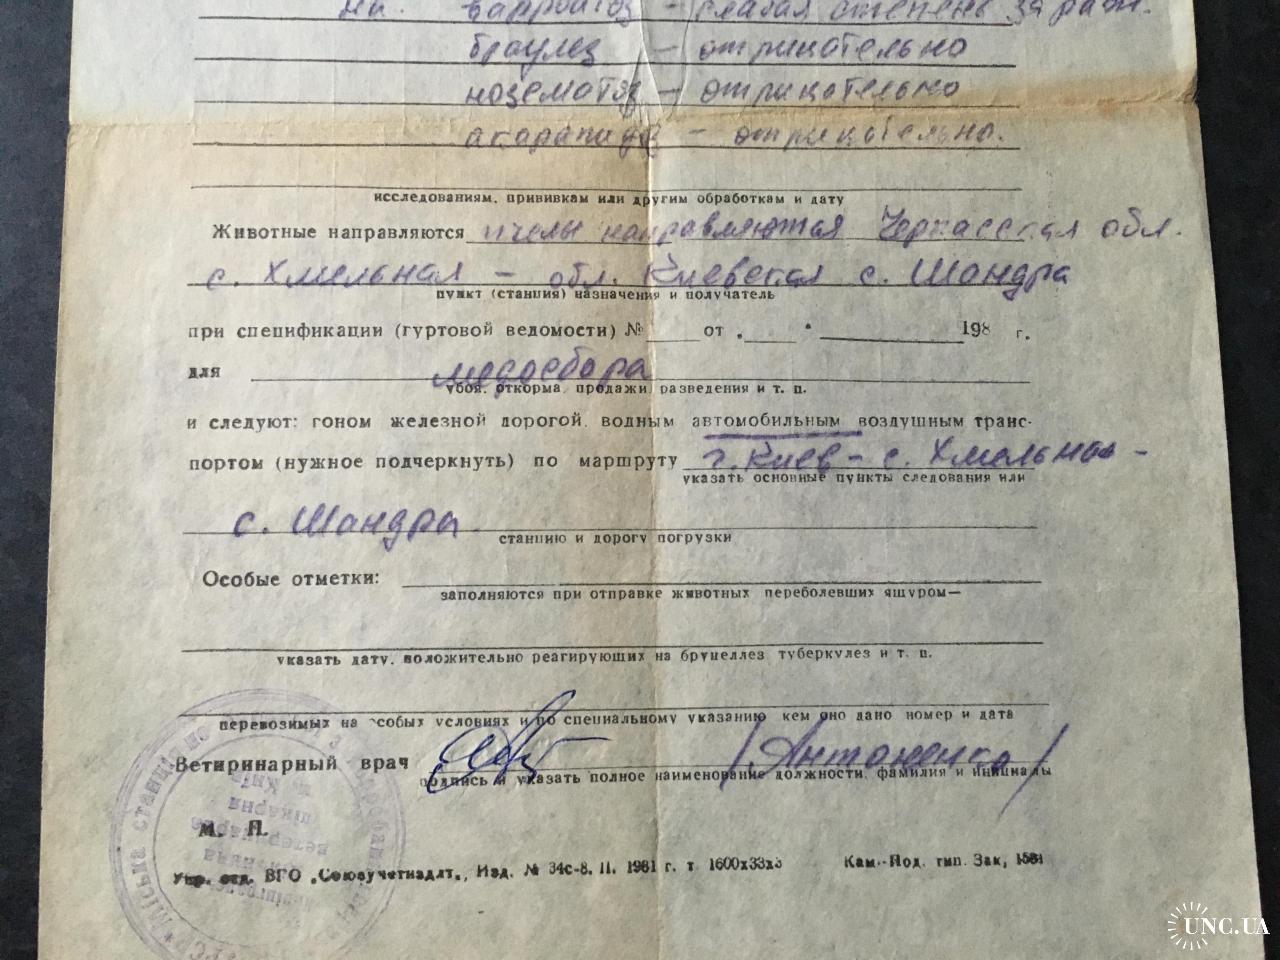 на варроатоз – слабая степень зараж.
браулез – отрицательно
нозематоз – отрицательно
акарапидоз – отрицательно.
исследованиям, прививкам или другим обработкам и дату
Животные направляются пчелы направляются Черкасская обл.
с. Хмельная – обл. Киевская с. Шандра
пункт (станция) назначения и получатель
при спецификации (гуртовой ведомости) № от „ " 198 г.
для медосбора
убоя, откорма, продажи, разведения и т. п.
и следуют: гоном железной дорогой, водным автомобильным воздушным транс-
портом (нужное подчеркнуть) по маршруту г. Киев – с. Хмельная –
указать основные пункты следования или
с. Шандра
станцию и дорогу погрузки
Особые отметки:
заполняются при отправке животных переболевших ящуром—
указать дату, положительно реагирующих на бруцеллез туберкулез и т. п.
перевозимых на особых условиях и по специальному указанию кем оно дано номер и дата
Ветеринарный врач /Антоненко/
подпись и указать полное наименование должности, фамилия и инициалы
М. П.
Упр. отд. ВГО „Союзучетиздат„, Изд. № 34с-8. II. 1981 г. т. 1600х33х3 Кам.-Под. тип. Зак, 1581
Міська станція по
з
ветеринарна
лікарня
м. Київ
UNC.UA